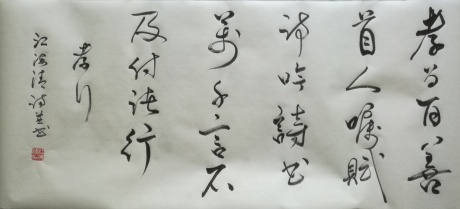 孝为百善
首人嘱赋
诗吟诗书
万千言不
及付诸行
孝行
江海清诗并书